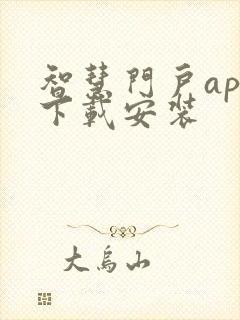 智慧門戶ap
下載安裝
大烏山